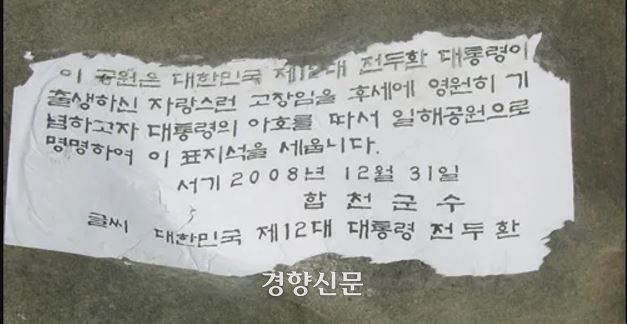 이 공원은 대한민국 제12대 전두환 대통령이
출생하신 자랑스런 고장임을 후세에 영원히 기
념하고자 대통령의 아호를 따서 일해공원으로
명명하여 이 표지석을 세웁니다.
서기 2008년 12월 31일
합천군수
글씨 대한민국 제12대 대통령 전두환
경향신문